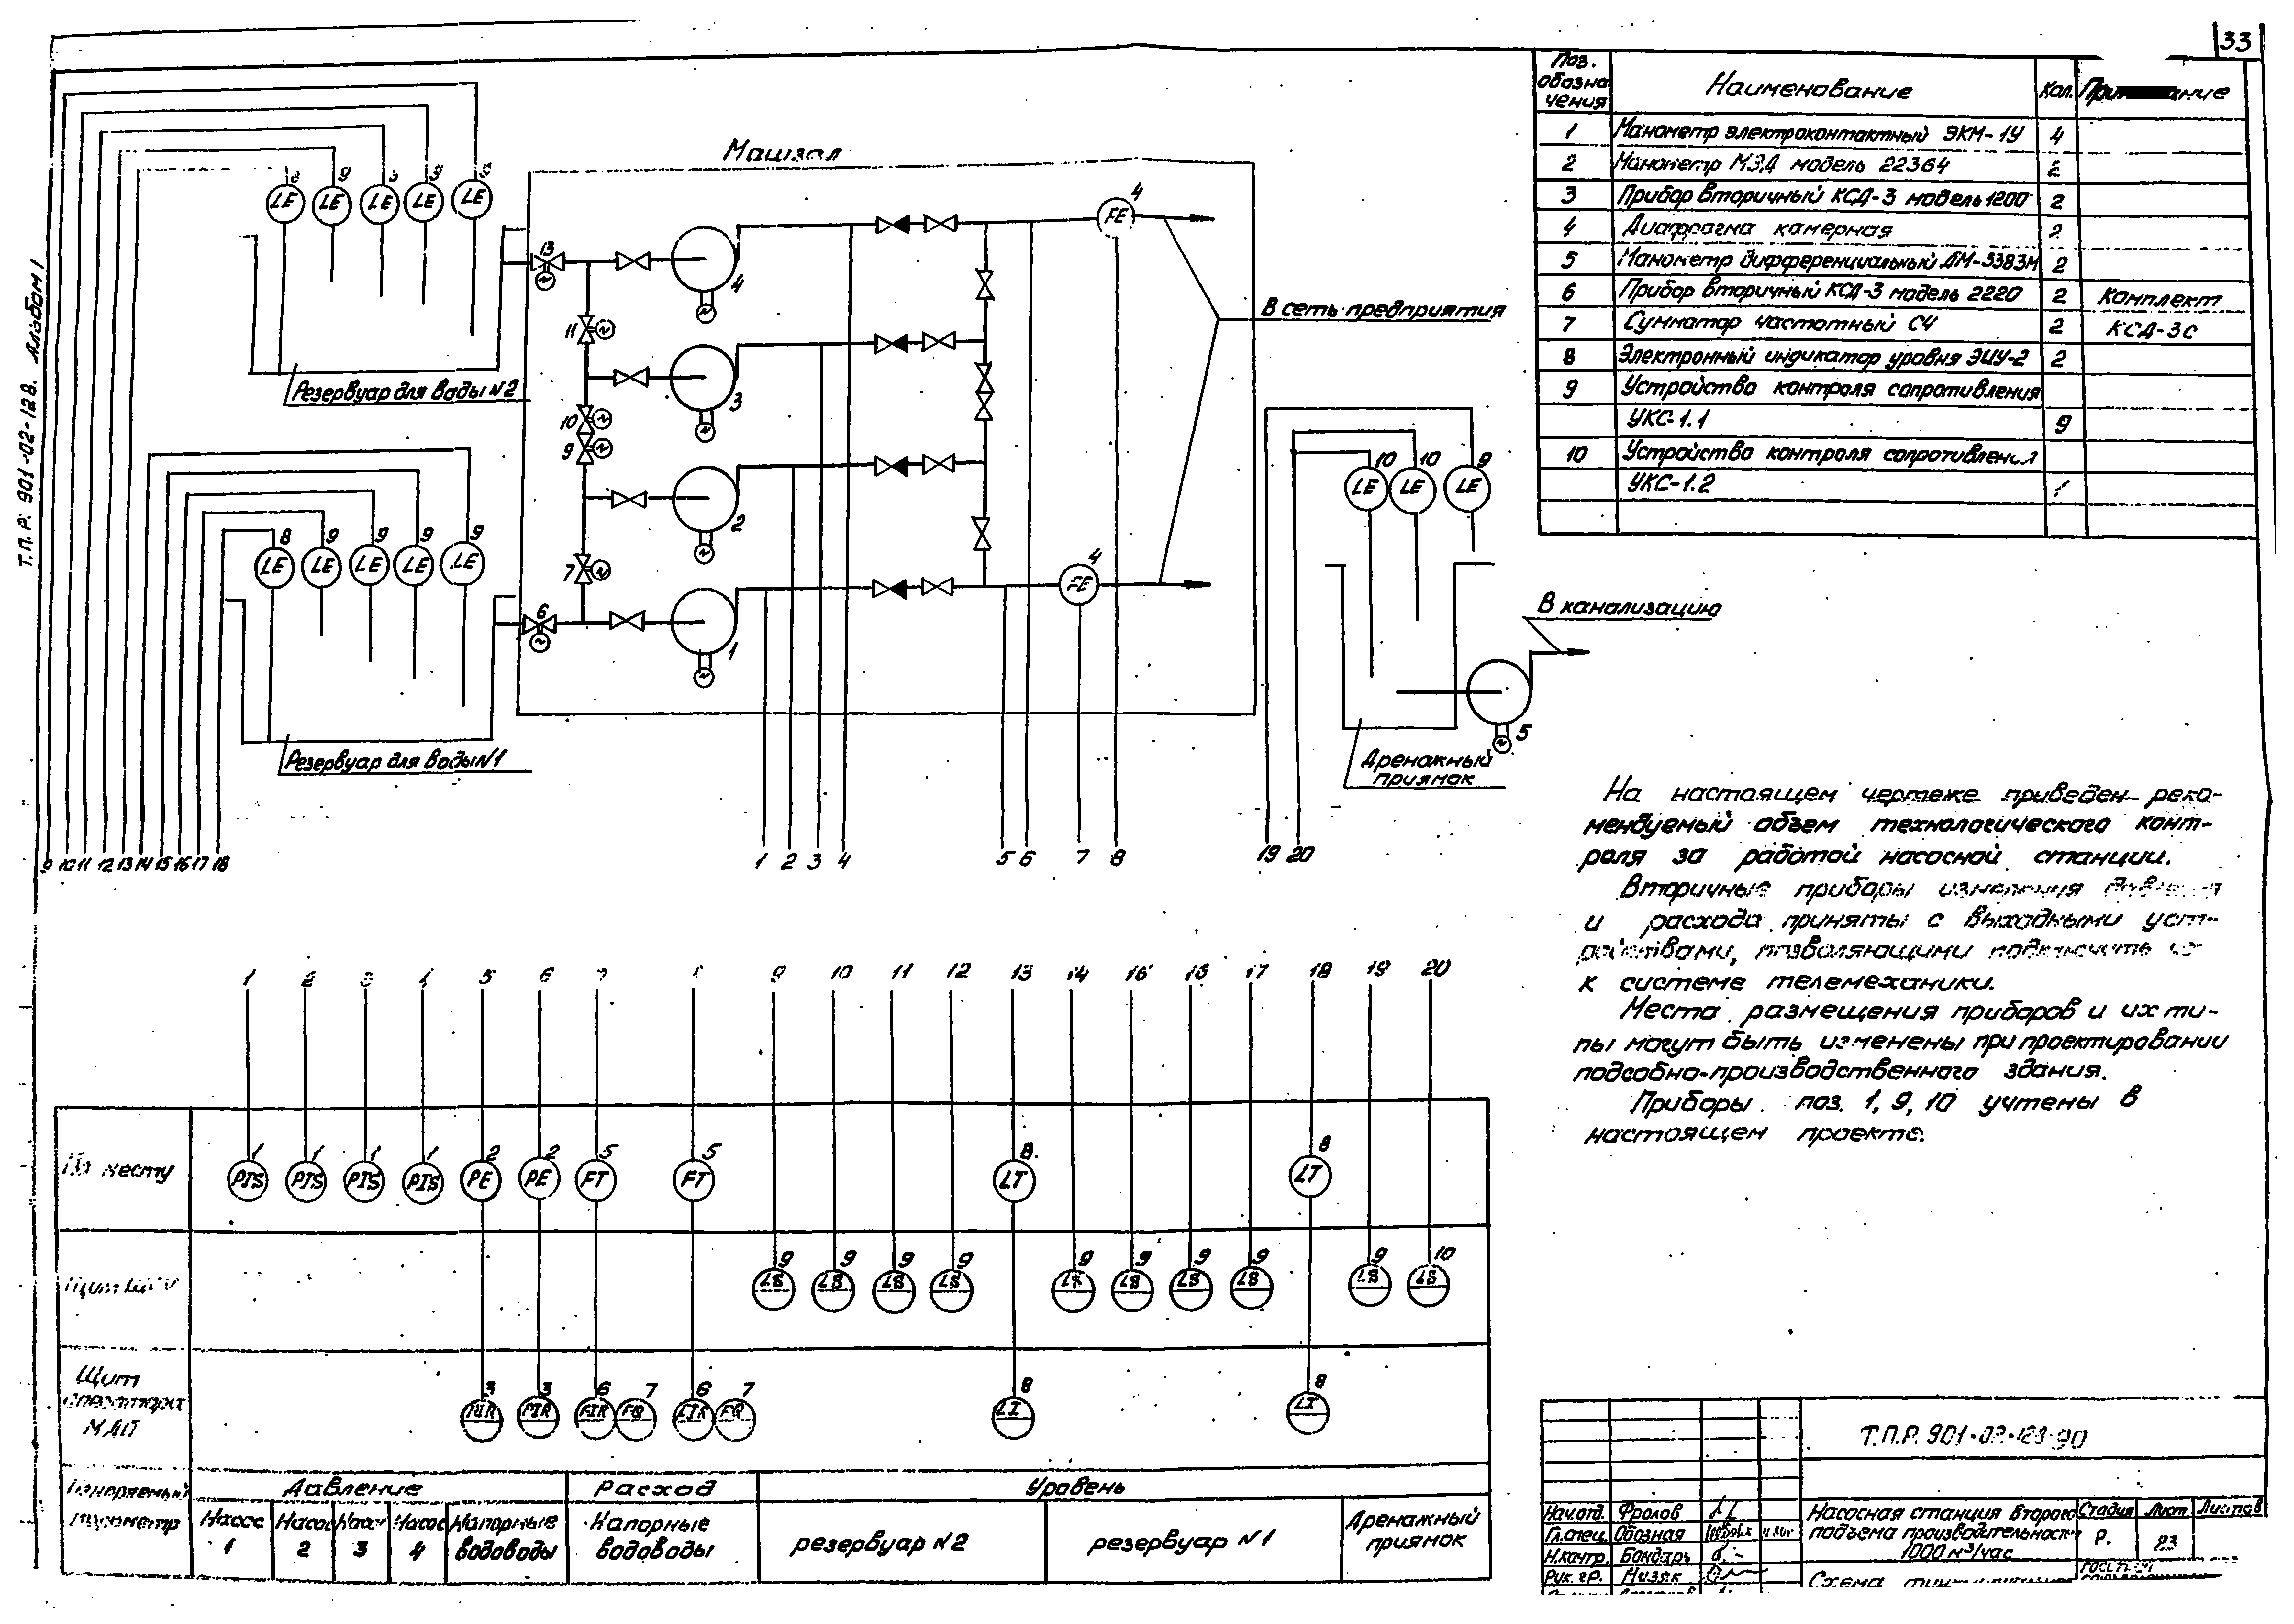 33
Т.П.Р. 901-02-128. Альбом I
Поз. обозна чения
Наименование
Кол.
1 Манометр электроконтактный ЭКМ-1У 4
2 Манометр МЭД модель 22364 2
3 Прибор вторичный КСД-3 модель 1200 2
4 Диафрагма камерная 2
5 Манометр дифференциальный ДМ-3383М 2
6 Прибор вторичный КСД-3 модель 2220 2 Комплект
7 Сумматор частотный СЧ 2 КСД-3С
8 Электронный индикатор уровня ЭИУ-2 2
9 Устройство контроля сопротивления
УКС-1.1 9
10 Устройство контроля сопротивления
УКС-1.2 1
Машзал
LE LE LE LE LE
9
13 11 10 9 7 6
4 3 2 1
FE 4
FE 4
В сеть предприятия
Резервуар для воды N2
8 9 9 9 9
LE LE LE LE LE
Резервуар для воды N1
10 10 9
LE LE LE
В канализацию
5
Дренажный
приямок
9 10 11 12 13 14 15 16 17 18
1 2 3 4 5 6 7 8
19 20
На настоящем чертеже приведен реко-
мендуемый объем технологического конт-
роля за работой насосной станции.
Вторичные приборы измерения
и расхода приняты с выходными уст-
ройствами, позволяющими подключить
к системе телемеханики.
Места размещения приборов и их ти-
пы могут быть изменены при проектировании
подсобно-производственного здания.
Приборы поз. 1, 9, 10 учтены в
настоящем проекте.
1 2 3 4 5 6 9 10 11 12 13 14 16 17 18 19 20
По месту
1 1 1 1 2 2 5 5 8 8
PIS PIS PIS PIS PE PE FT FT LT LT
9 9 9 9 9 9 9 9 9 10
LS LS LS LS LS LS LS LS LS LS
Щит
3 3 6 7 6 7 8 8
PIR PIR FIR FQ FIR FQ LI LI
Измеряемый
параметр
Давление
Расход
Уровень
Насос 1
Насос 2
Насос 3
Насос 4
Напорные водоводы
Напорные водоводы
резервуар N2
резервуар N1
Дренажный приямок
Т.П.Р. 901-02-128-90
Нач.отд. Фролов
Гл.спец. Обозная
Н.контр. Бондарь
Рук. гр. Низяк
Насосная станция второго
подъема производительностью
1000 м³/час
Стадия Лист Листов
Р. 23
Схема